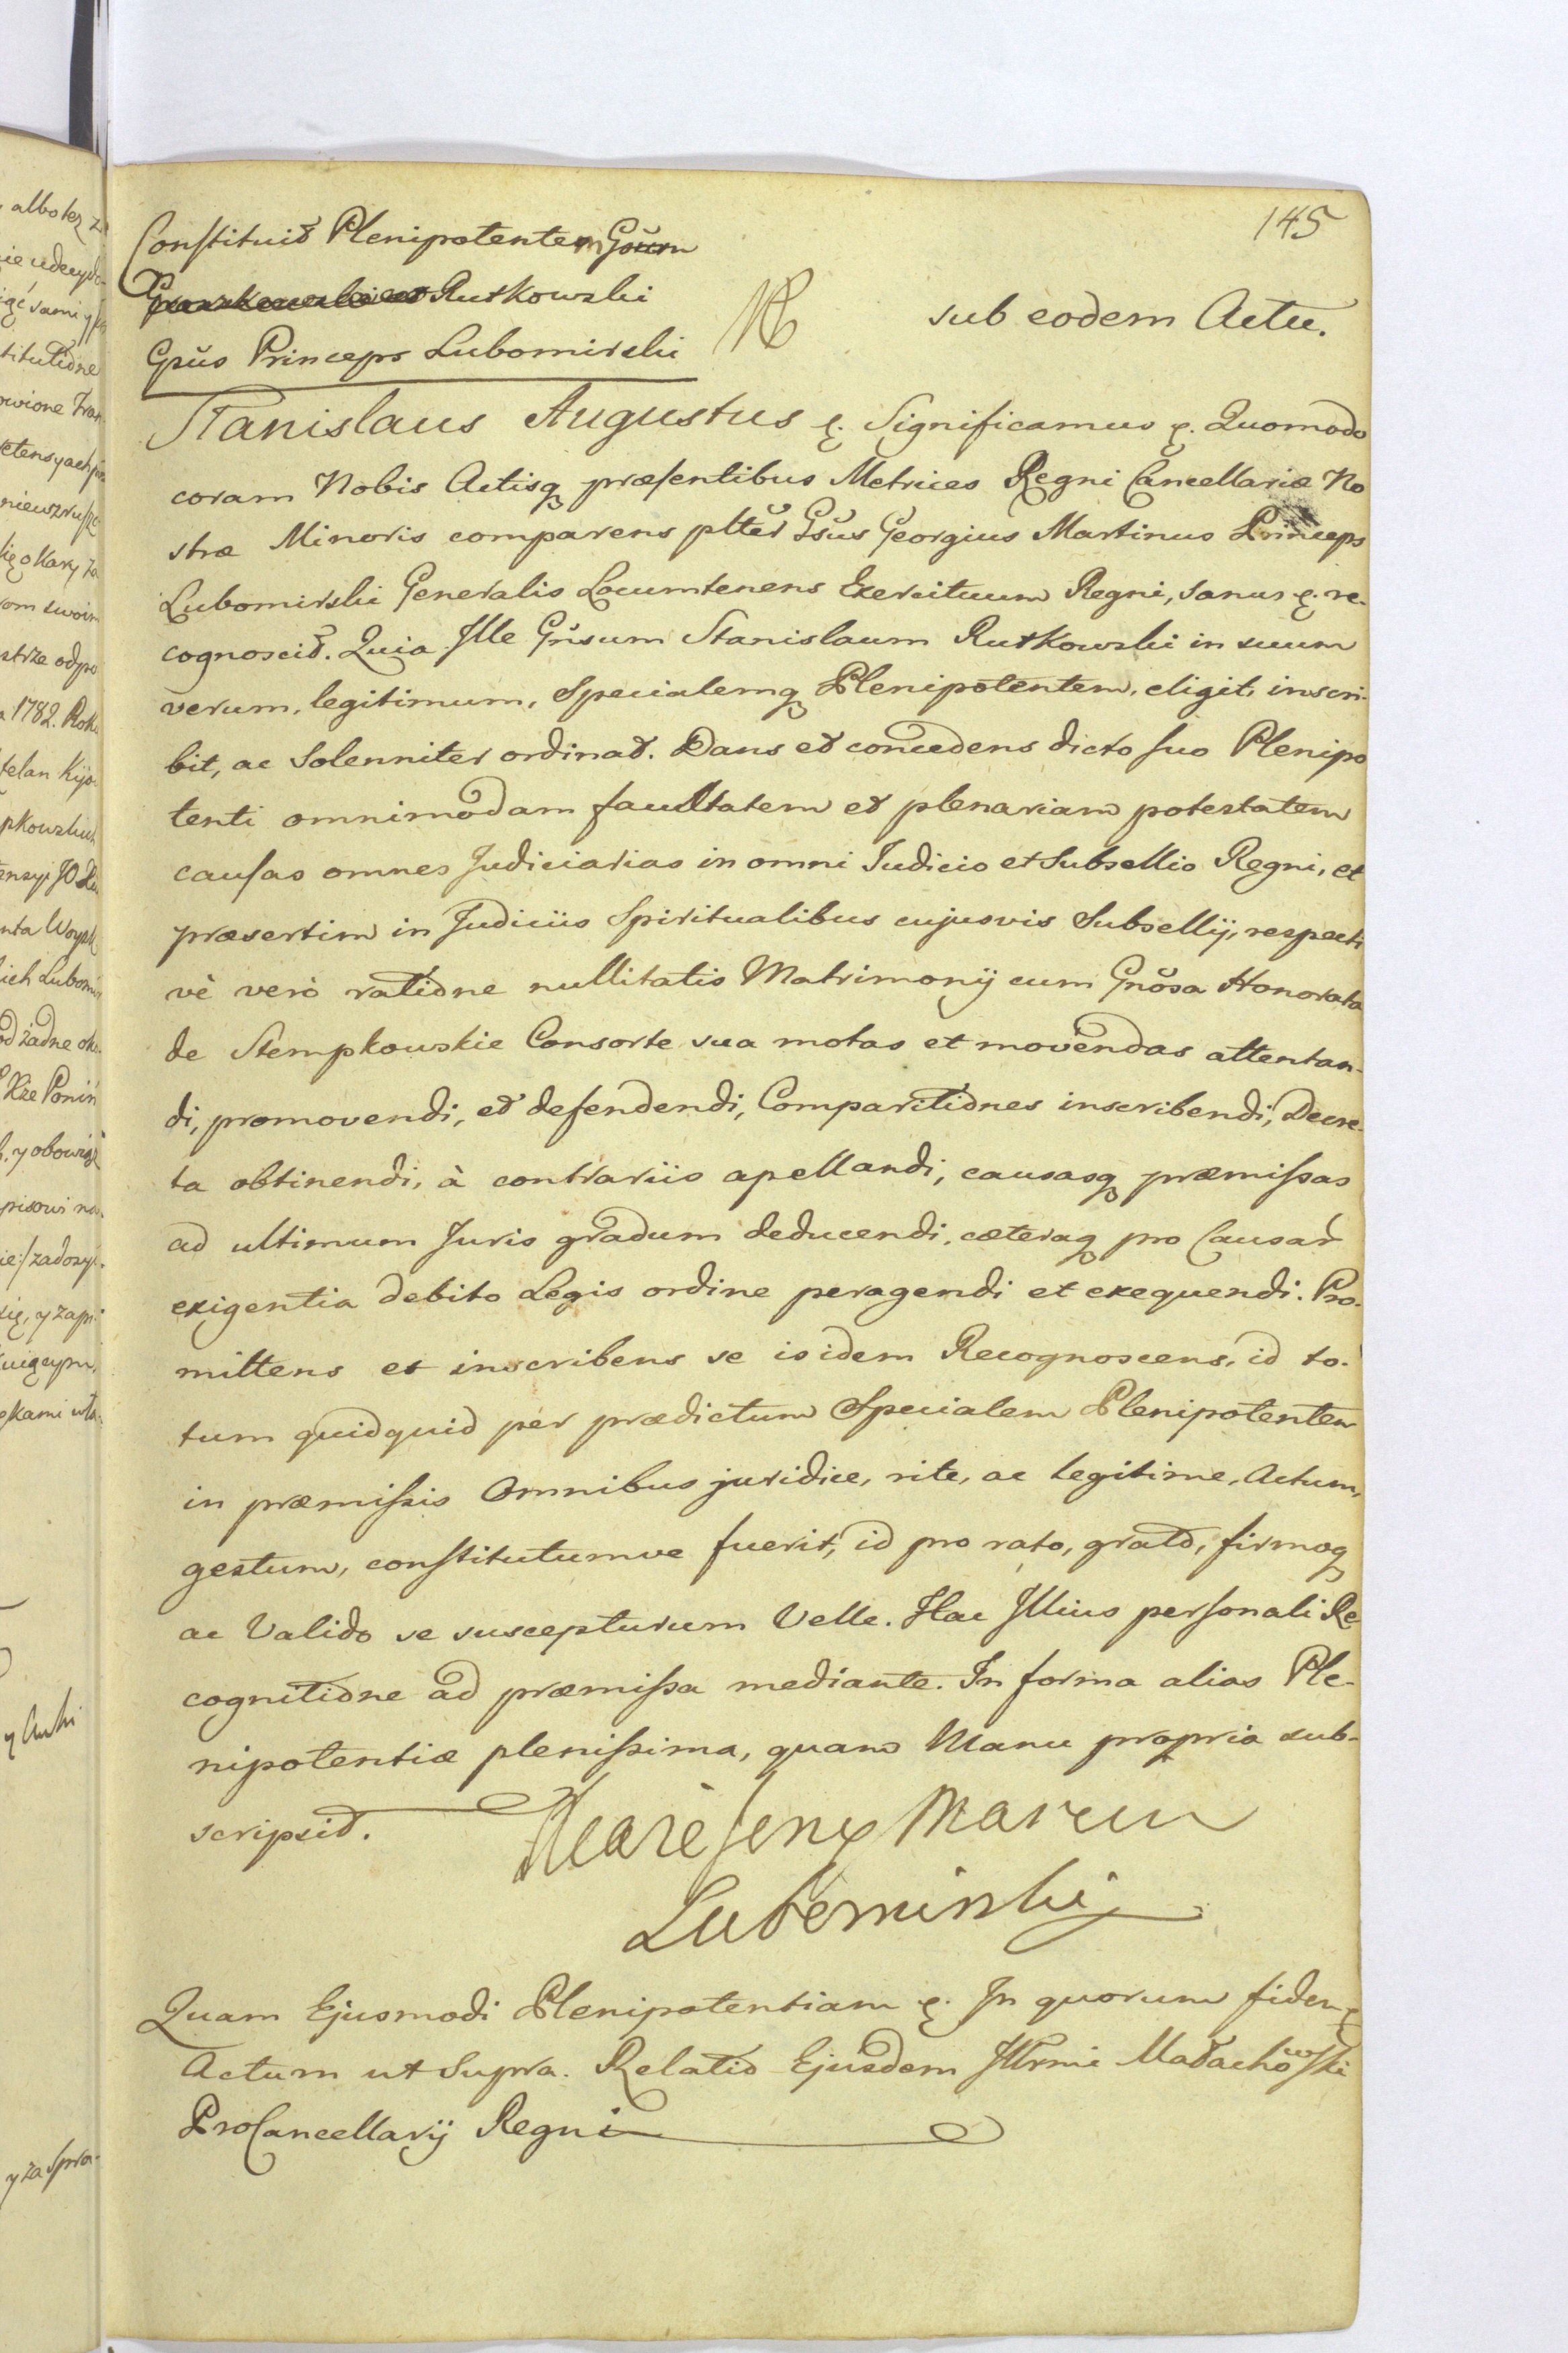 145
Constituit Plenipotentem Gŏsum
Rutkowski
Gsŭs Princeps Lubomirski
sub eodem Actu.
Stanislaus Augustus &. Significamus &. Quomodo
coram Nobis Actisq præsentibus Metrices Regni Cancellariæ No
stræ Minoris comparens plter Gsŭs Georgius Martinus Princeps
Lubomirski Generalis Locumtenens Exercituum Regni, sanus &. re-
cognoscit. Quia Ille Gnsum Stanislaum Rutkowski in suum
verum, legitimum, Specialemq Plenipotentem, eligit, inscri-
bit, ac Solenniter ordinat. Dans et concedens dicto suo Plenipo
tenti omnimodam facultatem et plenariam potestatem
causas omnes Judiciarias in omni Iudicio et Subsellio Regni, et
præsertim in Judiciis Spiritualibus cujusvis Subsellij, respecti
vè verò ratione nullitatis Matrimonij cum Gnosa Honorata
de Stempkowskie Consorte sua motas et movendas attentan-
di, promovendi, et defendendi, Comparitiones inscribendi, Decre-
ta obtinendi, à contrariis apellandi, causasq præmissas
ad ultimum Juris gradum deducendi, cæteraq pro Causar
exigentia debito Legis ordine peragendi et exequendi. Pro-
mittens et inscribens se isidem Recognoscens, id to-
tum quidquid per prædictum Specialem Plenipotentem
in præmissis Omnibus juridice, rite, ac legitime, Actum,
gestum, constitutumve fuerit, id pro rato, grato, firmoq
ac Valido se suscepturum Velle. Hac Illius personali Re
cognitione ad præmissa mediante. In forma alias Ple-
nipotentiæ plenissima, quam Manu propria sub-
scripsit.
Marcin
Lubomirski
Quam Ejusmodi Plenipotentiam &. In quorum fidem &
Actum ut Supra. Relatio Ejusdem Illrmi Małachowski
ProCancellarij Regni